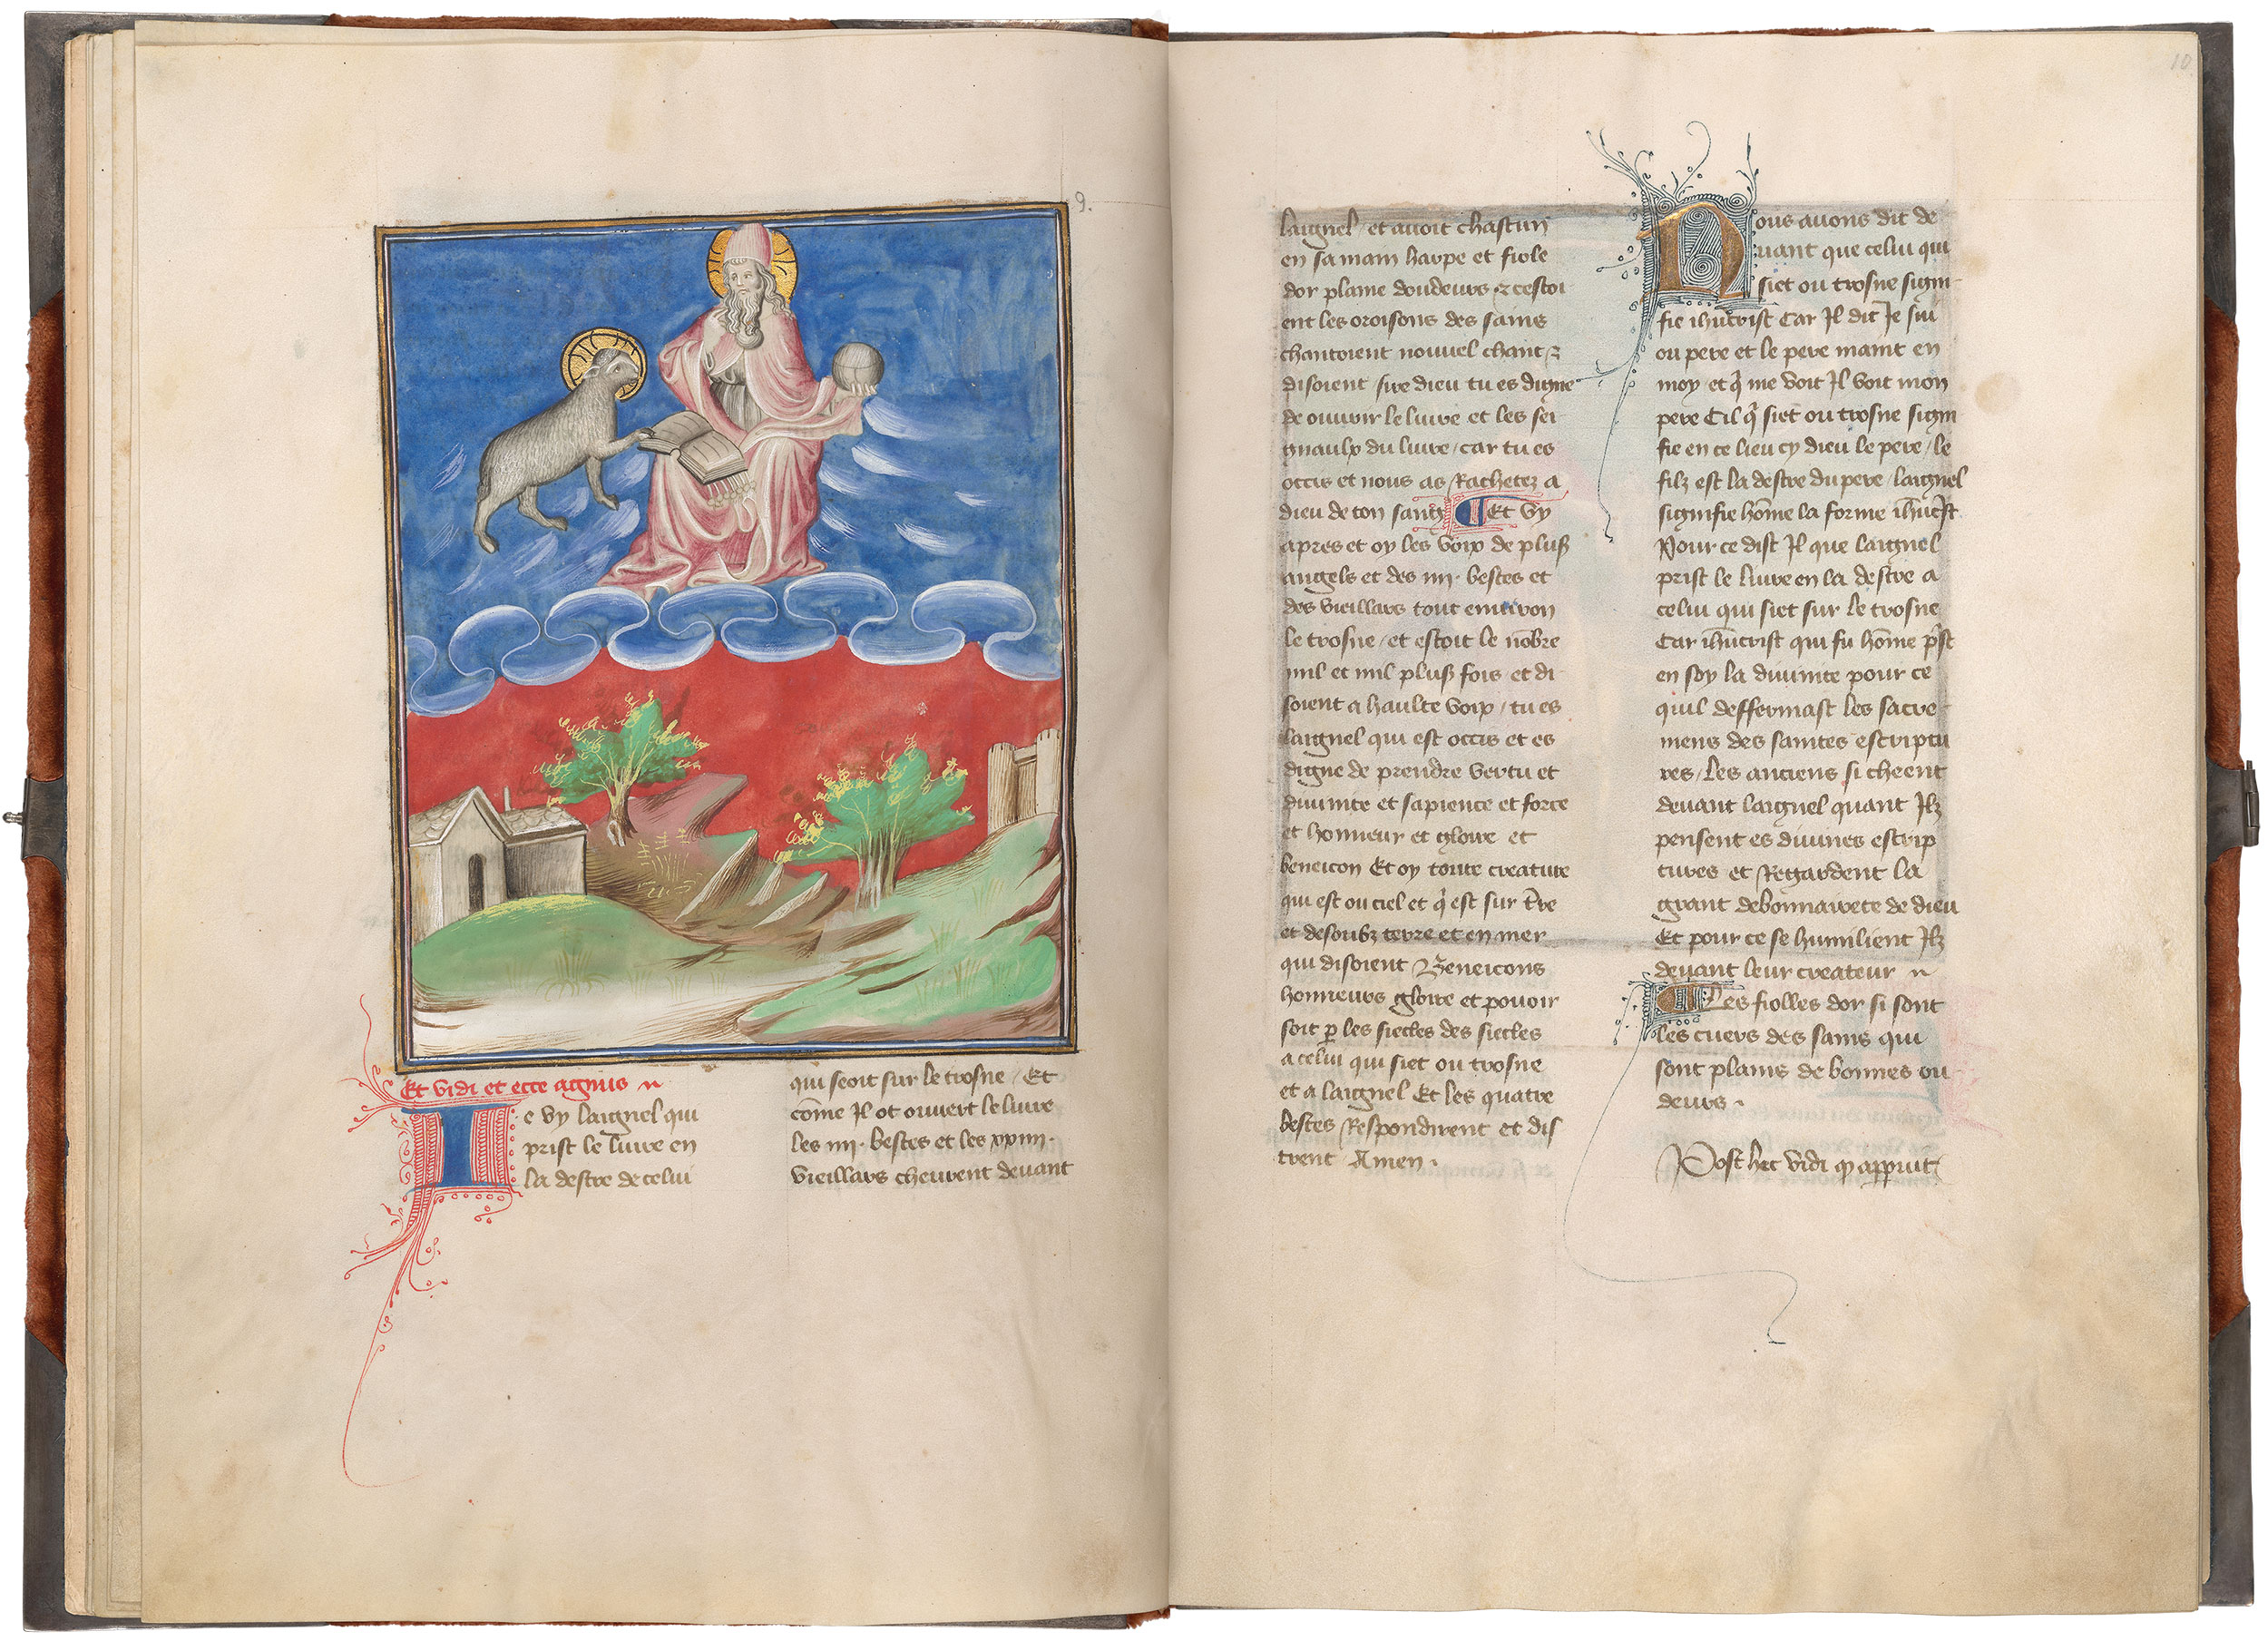 9.
Et vidi et ecce agnus
Je vy laignel qui
prist le livre en
la destre de celui
qui seoit sur le trosne / Et
cōme Il ot ouvert le livre
les iiii. bestes et les xxiiii.
vieillars cheurent devant
10
laignel / et avoit chascun
en sa main harpe et fiole
dor plaine doudeurs & cestoi
ent les oroisons des sains
chantoient nouvel chant &
disoient / sire dieu tu es digne
de ouvrir le livre et les sei
gnaulx du livre / car tu es
occis et nous as Rachetez a
dieu de ton sang Et vy
apres et oy les voix de pluss
angels et des iiii. bestes et
des vieillars tout environ
le trosne / et estoit le nōbre
mil et mil pluss fois et di
soient a haulte voix / tu es
laignel qui est occis et es
digne de prendre vertu et
divinite et sapience et force
et honneur et gloire et
beneicon Et oy toute creature
qui est ou ciel et q̄ est sur t̄re
et desoubz terre et en mer
qui disoient Beneicons
honneurs gloire et pouoir
soit p les siecles des siecles
a celui qui siet ou trosne
et a laignel Et les quatre
bestes Respondirent et dis
trent Amen .
Nous avons dit de
vant que celui qui
siet ou trosne signi
fie ihūcrist Car Il dit Je sui
ou pere et le pere maint en
moy / et q̄ me voit Il voit mon
pere Cil q̄ siet ou trosne signi
fie en ce lieu cy dieu le pere / le
filz est la destre du pere / laignel
signifie hōme la forme ihūcst
Pour ce dist Il que laignel
prist le livre en la destre a
celui qui siet sur le trosne
Car ihūcrist qui fu hōme p̄st
en soy la divinite pour ce
quil deffermast les sacre
mens des saintes escriptu
res / Les anciens si cheent
devant laignel quant Ilz
pensent es divines escrip
tures et Regardent la
grant debonnairete de dieu
Et pour ce se humilient Ilz
devant leur createur
Les fiolles dor si sont
les cuers des sains qui
sont plains de bonnes ou
deurs .
Post hec vidi q apparuit